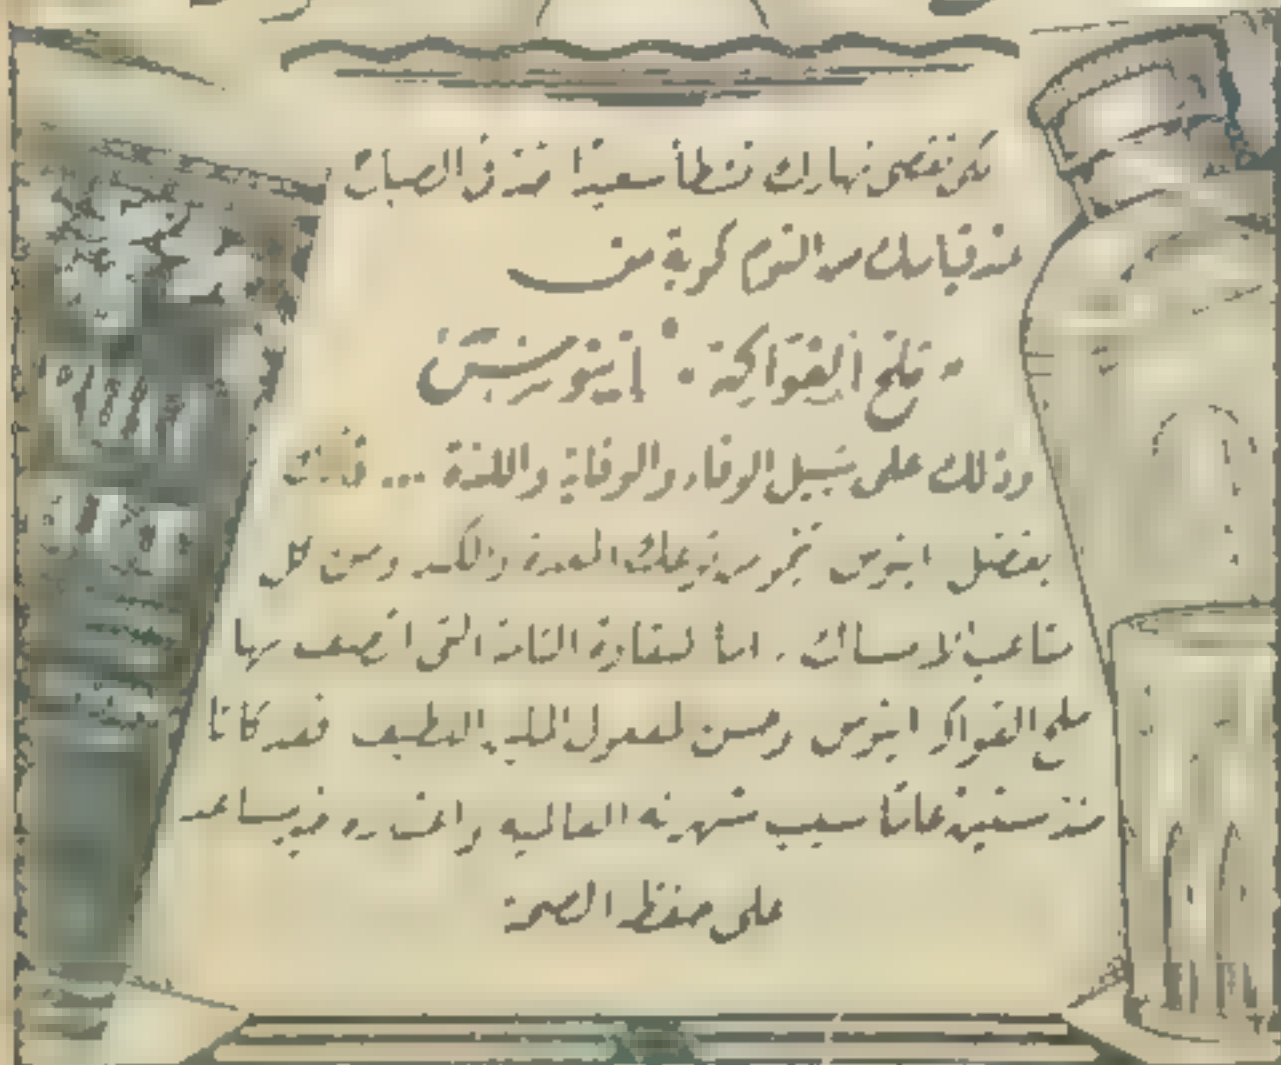 لكي تقضي نهارك نشطاً سعيداً خذ في الصباح
عند قيامك من النوم كوبة من
ملح الفواكه : إينوس
وذلك على سبيل الوفاء والوقاية واللذة ... فإنك
بفضل اينوس تنجو من توعك المعدة والكبد ومن كل
متاعب الامساك . اما النقاوة التامة التي اتصف بها
ملح الفواكه اينوس وحسن المفعول اللطيف فقد كانا
منذ ستين عامًا سبب شهرته العالمية واعتباره خير مساعد
على حفظ الصحة